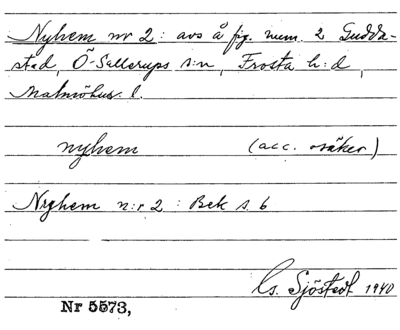 Nyhem nr 2: avs å fig. num. 2 Gudda-
stad, Ö-Sallerups s:n, Frosta h:d,
Malmöhus l.
nyhem (acc. osäker)
Nyhem n:r 2 : Bek s. 6
Cs. Sjöstedt 1940
Nr 5573,